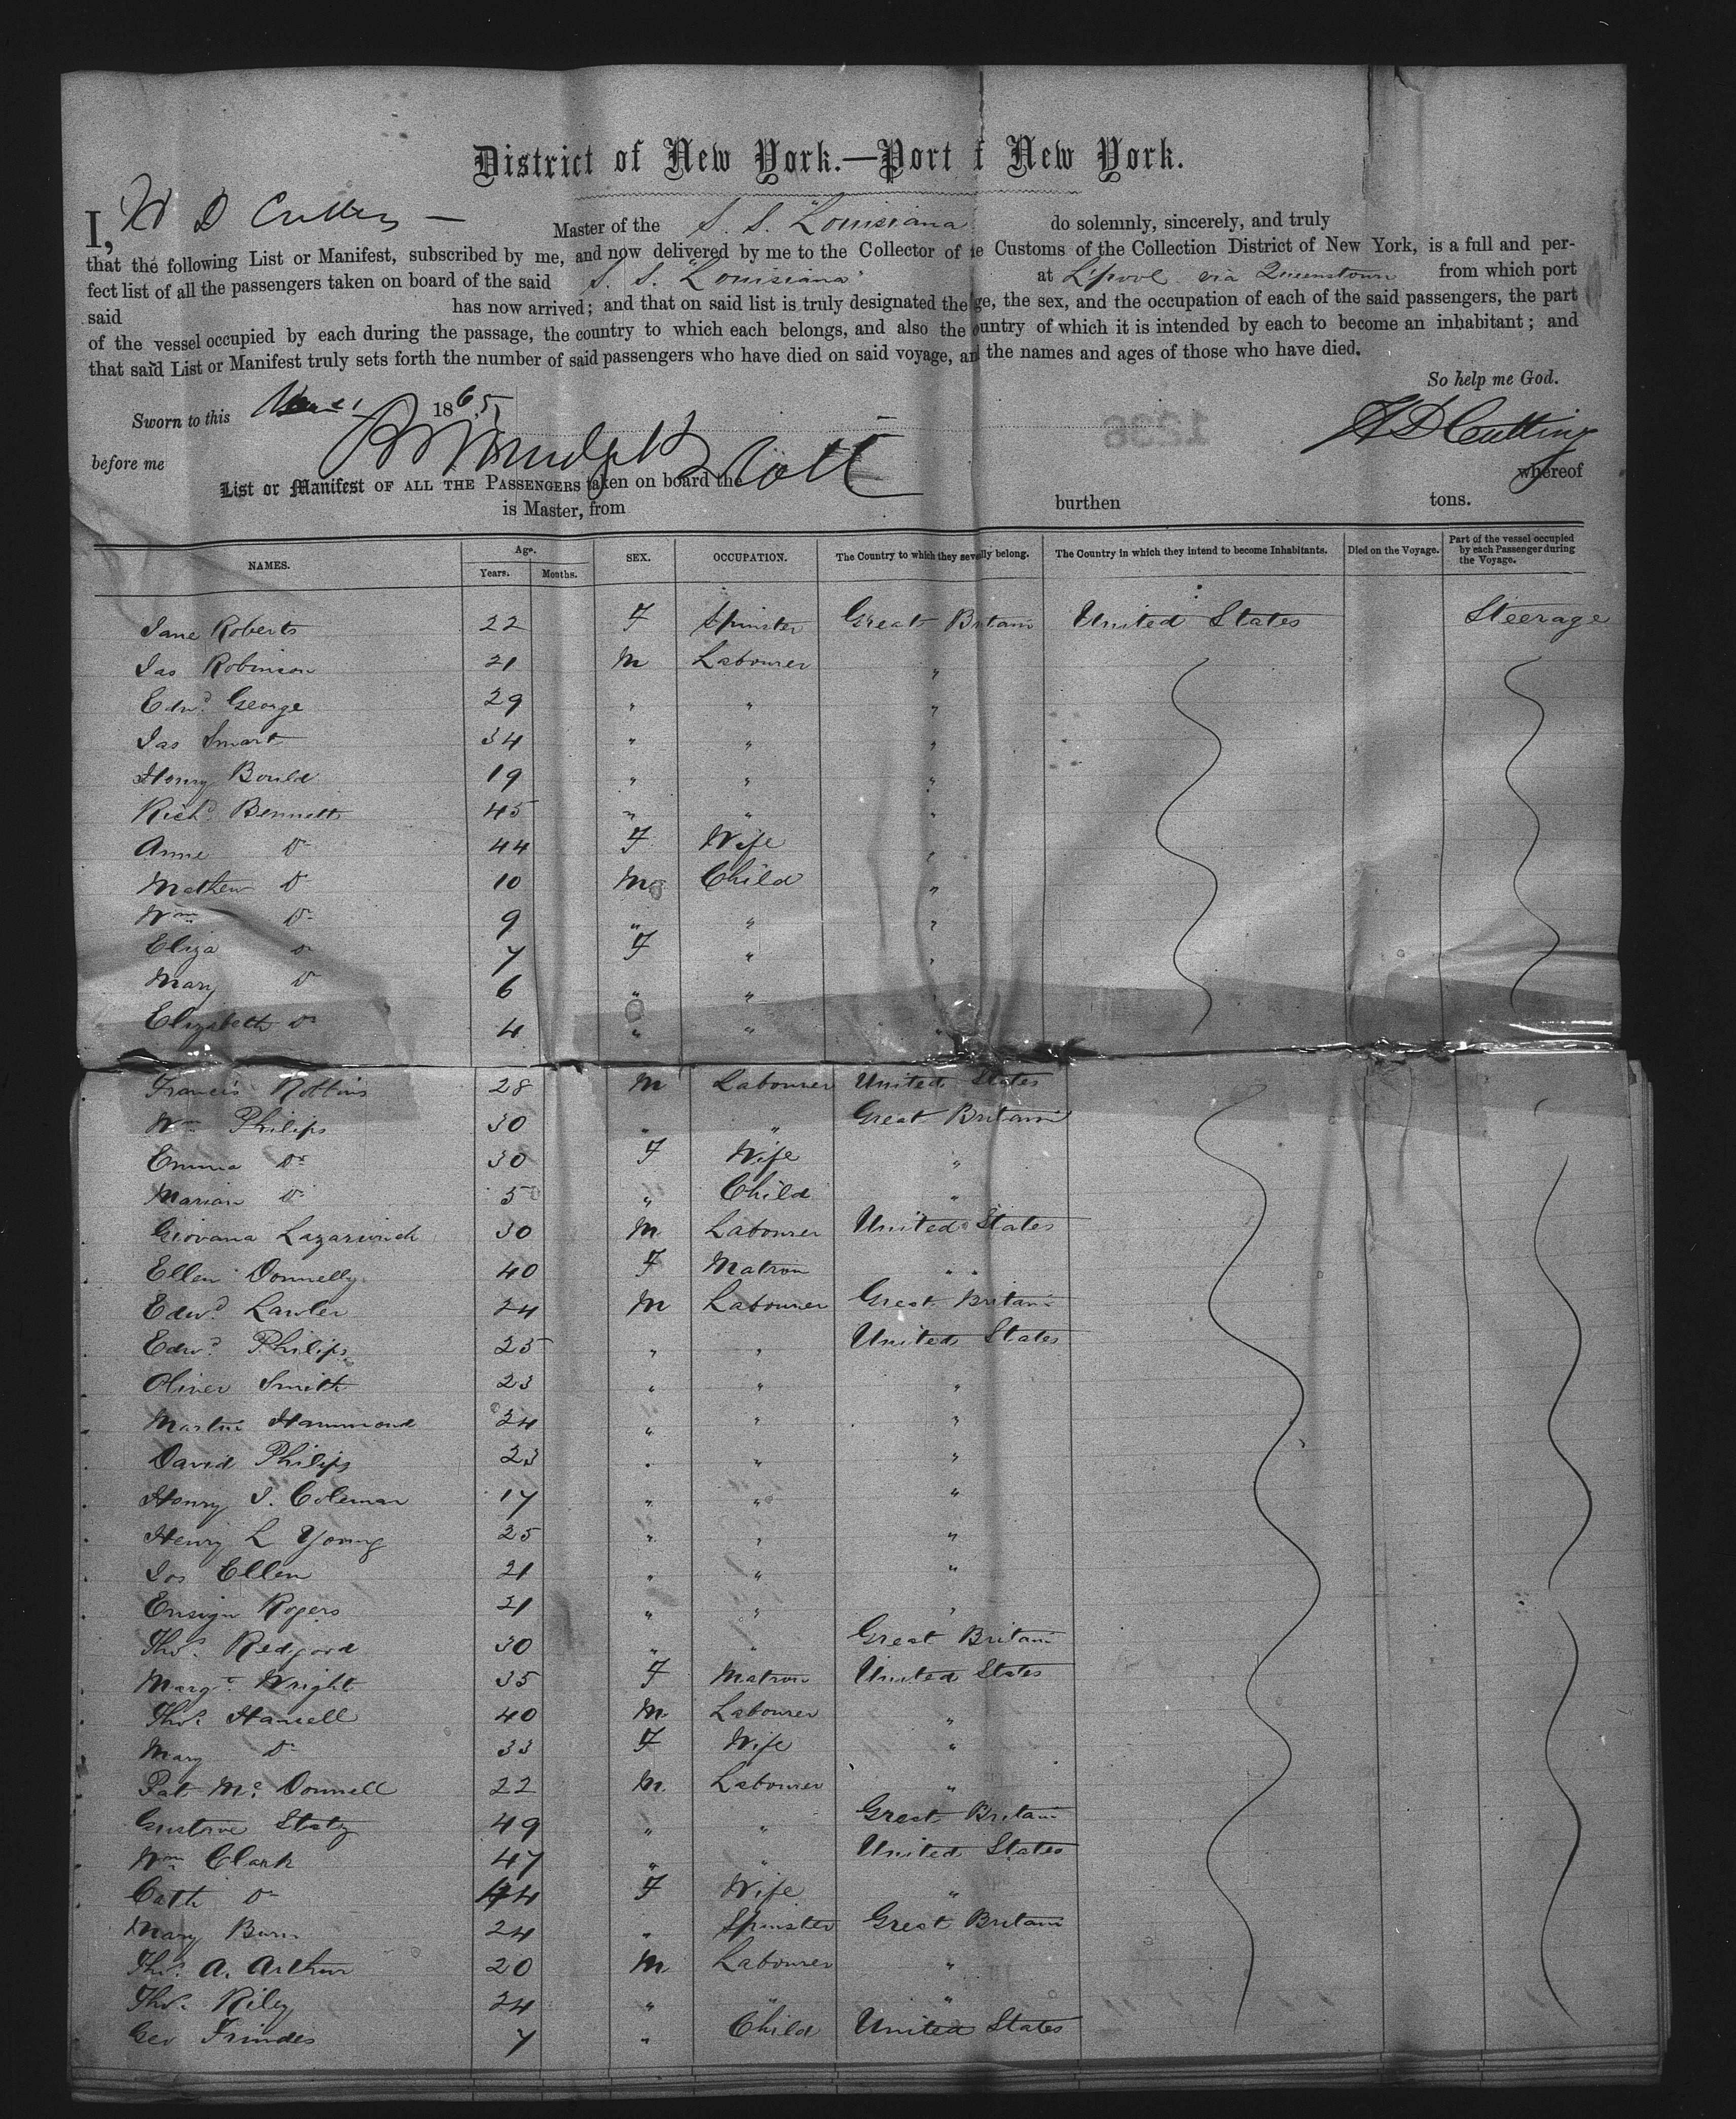 District of New York.—Port f New York.
I, W D Cutting — Master of the S. S. "Louisiana do solemnly, sincerely, and truly
that the following List or Manifest, subscribed by me, and now delivered by me to the Collector of e Customs of the Collection District of New York, is a full and per-
fect list of all the passengers taken on board of the said S. S. "Louisiana" at L'pool via Queenstown from which port
said has now arrived; and that on said list is truly designated the ge, the sex, and the occupation of each of the said passengers, the part
of the vessel occupied by each during the passage, the country to which each belongs, and also the ountry of which it is intended by each to become an inhabitant; and
that said List or Manifest truly sets forth the number of said passengers who have died on said voyage, an the names and ages of those who have died.
So help me God.
Sworn to this 1865
1236
F D Cutting
before me
List or Manifest OF ALL THE PASSENGERS taken on board the whereof
is Master, from burthen tons.
NAMES. Age. Years. Months. SEX. OCCUPATION. The Country to which they sevelly belong. The Country in which they intend to become Inhabitants. Died on the Voyage. Part of the vessel occupied by each Passenger during the Voyage.
Jane Roberts 22 F Spinster Great Britain United States Steerage
Jas Robinson 21 M Labourer "
Edwd. George 29 " " "
Jas Smart 34 " " "
Henry Bould 19 " " "
Richd. Bennett 45 " " "
Anne Do 44 F Wife "
Mathew Do 10 M Child "
Wm Do 9 " " "
Eliza Do 7 F " "
Mary Do 6 " "
Elizabeth Do 4 " " "
Francis Robbins 28 M Labourer United States
Wm Philips 30 " " Great Britain
Emma Do 30 F Wife "
Marian Do 5 " Child "
Giovana Lazarwich 30 M Labourer United States
Ellen Donnelly 40 F Matron " "
Edwd. Lawler 24 M Labourer Great Britain
Edwd. Philips 25 " " United States
Oliver Smith 23 " " "
Martin Hammond 24 " " "
David Philips 23 " " "
Henry J. Coleman 17 " " "
Henry L Young 25 " " "
Jos Ellen 21 " " "
Ensign Rogers 21 " " "
Thos. Redford 30 " " Great Britain
Margt. Wright 35 F Matron United States
Thos. Hansell 40 M Labourer "
Mary Do 33 F Wife "
Pat Mc. Donnell 22 M Labourer "
Gustave Statz 49 " " Great Britain
Wm Clark 47 " " United States
Cath Do 44 F Wife "
Mary Burn 24 " Spinster Great Britain
Thos. A. Arthur 20 M Labourer "
Thos. Riley 24 " " "
Geo Trindes 7 " Child United States